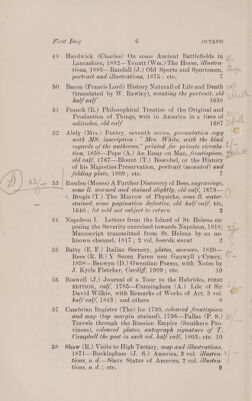 First Day 6 OCTAVO
49 Hardwick (Charles) On some Ancient Battlefields in
Lancashire, 1882—Youatt (Wm.) The Horse, illustra-
tions, 1885—Randall (J.) Old Sports and Sportsmen,
portrait and illustrations, 1875; etc.
50 Bacon (Francis Lord) History Naturall of Life and Death
(translated by W. Rawley), wanting the portrait, old
half calf 1638
51 Franck (R.) Philosophical Treatise of the Original and
Production of Things, writ in America in a time of
solitudes, old calf 1687
52 Abdy (Mrs.) Poetry, seventh series, presentation copy
with MS. inscription "Mrs. White, with the kind
regards of the authoress," printed for private circula-
tion, 1858—Pope (A.) An Essay on Man, frontispiece,
old calf, 1767—Blount (T.) Boscobel, or the History
of his Majesties Preservation, portrait (mounted) and
folding plate, 1809; etc. 7
53 Rusden (Moses) A Further Discovery of Bees, engravings,
some ll. wormed and stained slightly, old calf, 1679—
Brugis (T.) The Marrow of Physicke, some ll. water
stained, some pagination defective, old half calf, 4to,
1640; lot sold not subject to return 2
54 Napoleon I. Letters from the Island of St. Helena ex-
posing the Severity exercised towards Napoleon, 1818;
Manuscript transmitted from St. Helena by an un-
known channel, 1817; 2 vol. boards, uncut
55 Batty (E. F.) Italian Scenery, plates, morocco, 1820—
Rees (R. B.) Y Seren Fareu neu Gauwyll y Cymry,
1858—Benwyn (D.) Gwentian Poems, with Notes by
J. Kyrle Fletcher, Cardiff, 1909; etc. 10
56 Boswell (J.) Journal of a Tour to the Hebrides, FIRST
EDITION, calf, 1785—Cunningham (A.) Life of Sir
David Wilkie, with Remarks of Works of Art, 3 vol.
half calf, 1843; and others 8
57 Cambrian Register (The) for 1795, coloured frontispiece
and map (top margin stained), 1796—Pallas (P. S.)
Travels through the Russian Empire (Southern Pro-
vinces), coloured plates, autograph signature of T.
Campbell the poet in each vol. half calf, 1803; etc. 10
58 Shaw (R.) Visits to High Tartary, map and illustrations,
1871—Buckinghame (J. S.) America, 3 vol. illustra-
tions, n. d.—Slave States of America, 2 vol. illustra-
tions, n. d.; etc. 9